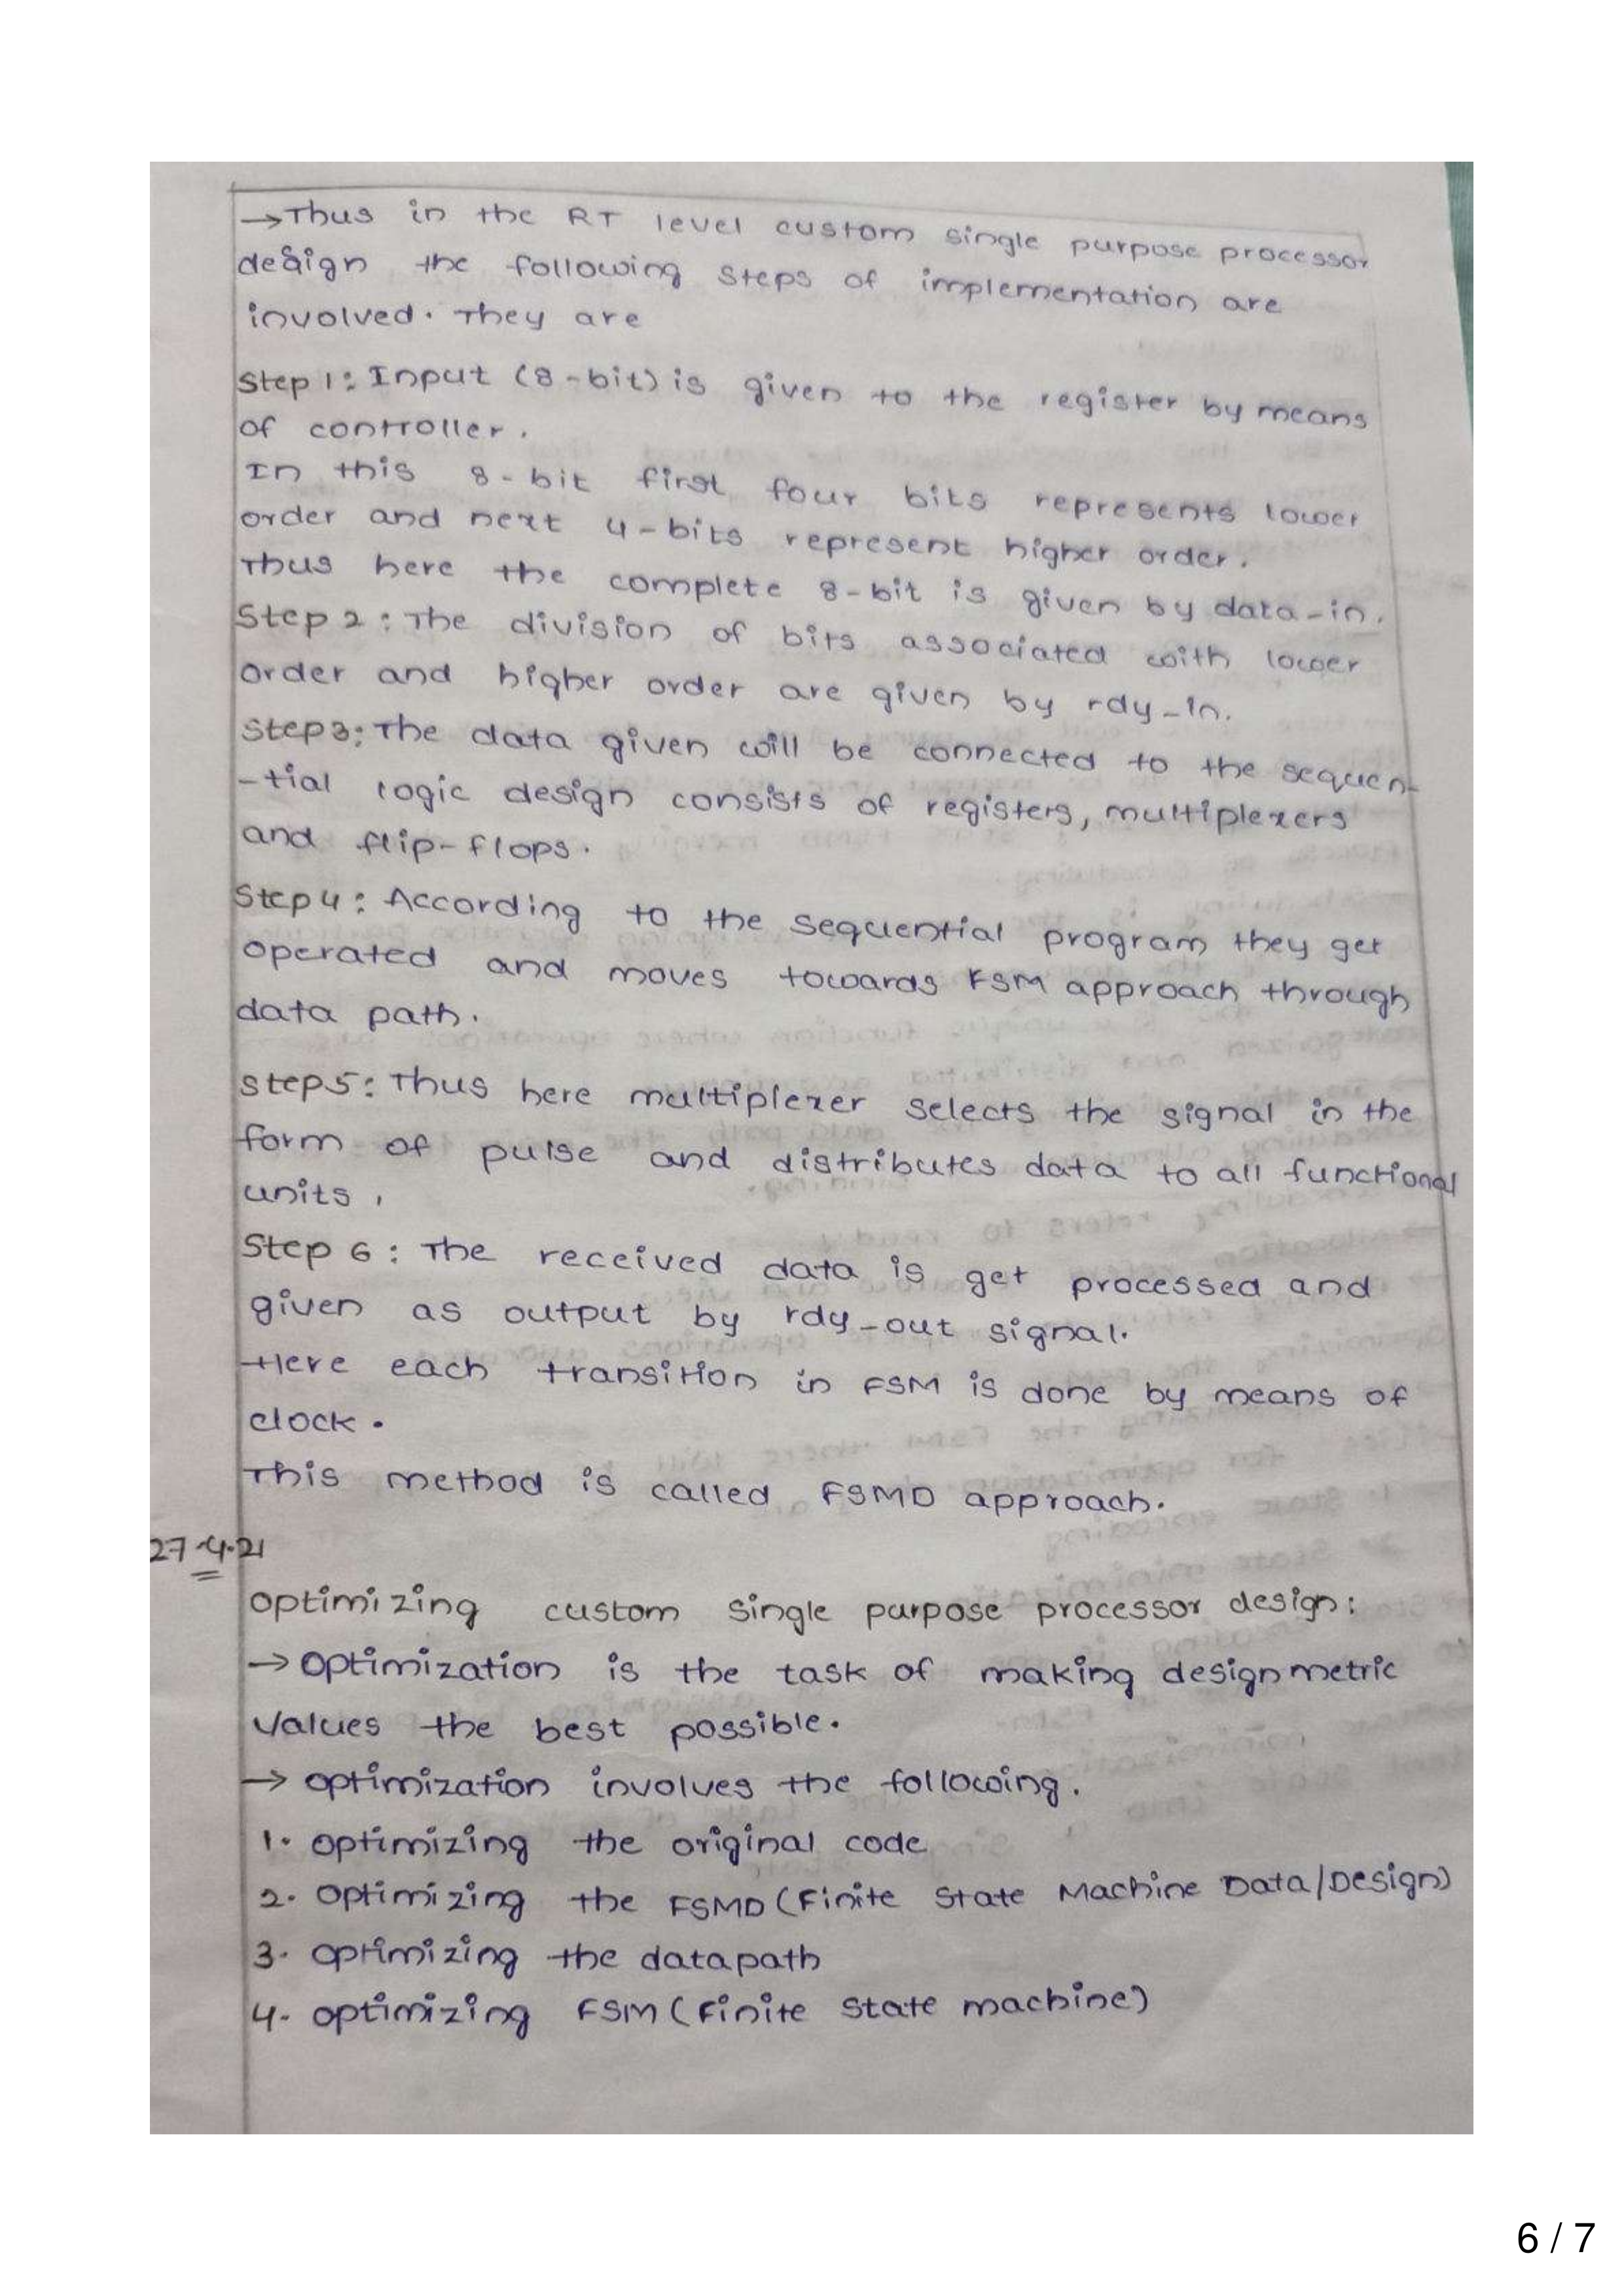 →Thus in the RT level custom single purpose processor
design the following steps of implementation are
involved. They are
Step 1: Input (8-bit) is given to the register by means
of controller.
In this 8-bit first four bits represents lower
order and next 4-bits represent higher order.
Thus here the complete 8-bit is given by data-in.
Step 2: The division of bits associated with lower
order and higher order are given by rdy-in.
Step3: The data given will be connected to the sequen-
-tial logic design consists of registers, multiplexers
and flip-flops.
Step4: According to the sequential program they get
operated and moves towards FSM approach through
data path.
Step5: Thus here multiplexer selects the signal in the
form of pulse and distributes data to all functional
units.
Step 6: The received data is get processed and
given as output by rdy-out signal.
Here each transition in FSM is done by means of
clock.
This method is called FSMD approach.
27-4-21
Optimizing custom single purpose processor design:
→ Optimization is the task of making design metric
values the best possible.
→ optimization involves the following.
1. optimizing the original code
2. Optimizing the FSMD (Finite State Machine Data/Design)
3. optimizing the datapath
4. optimizing FSM (Finite state machine)
6 / 7